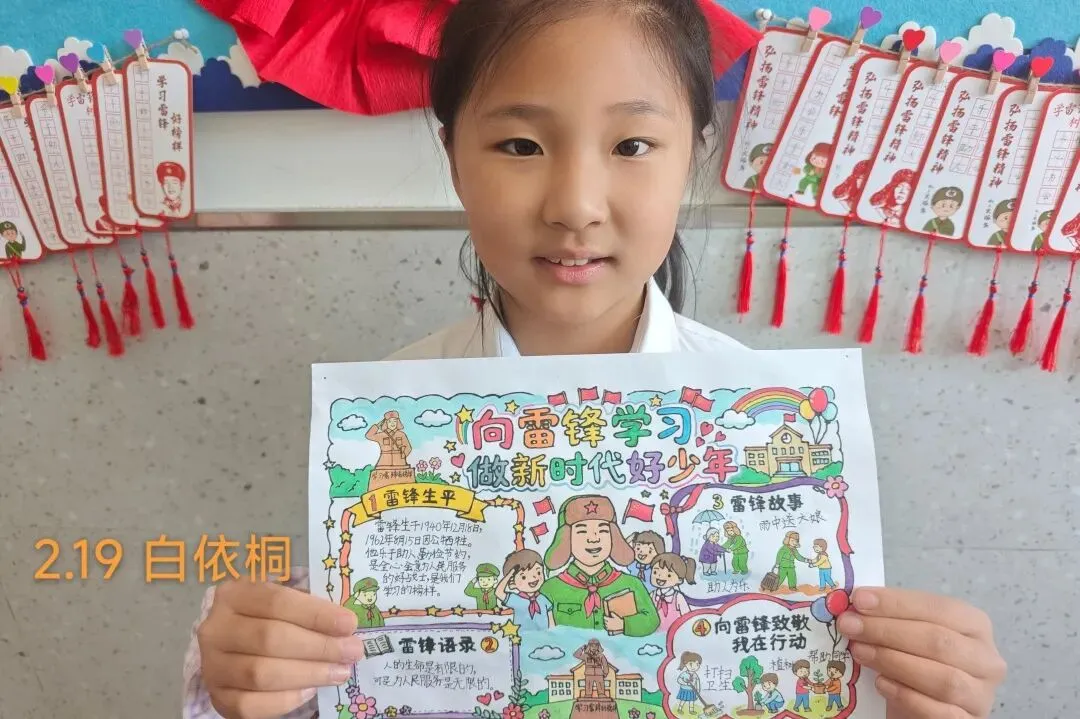 学习雷锋
好榜样
弘扬雷锋精神
弘扬雷锋精神
弘扬雷锋精神
弘扬雷锋精神
弘扬雷锋精神
弘扬雷锋精神
向雷锋学习
做新时代好少年
学习雷锋好榜样
1 雷锋生平
雷锋生于1940年12月18日,
1962年8月15日因公牺牲。
他乐于助人,勤俭节约,
是全心全意为人民服务
的好战士,是我们
学习的榜样。
雷锋语录 2
人的生命是有限的,
可是为人民服务是无限的。
3 雷锋故事
雨中送大娘
助人为乐
4 向雷锋致敬
我在行动
打扫
卫生
植树
帮助同学
2.19 白依桐